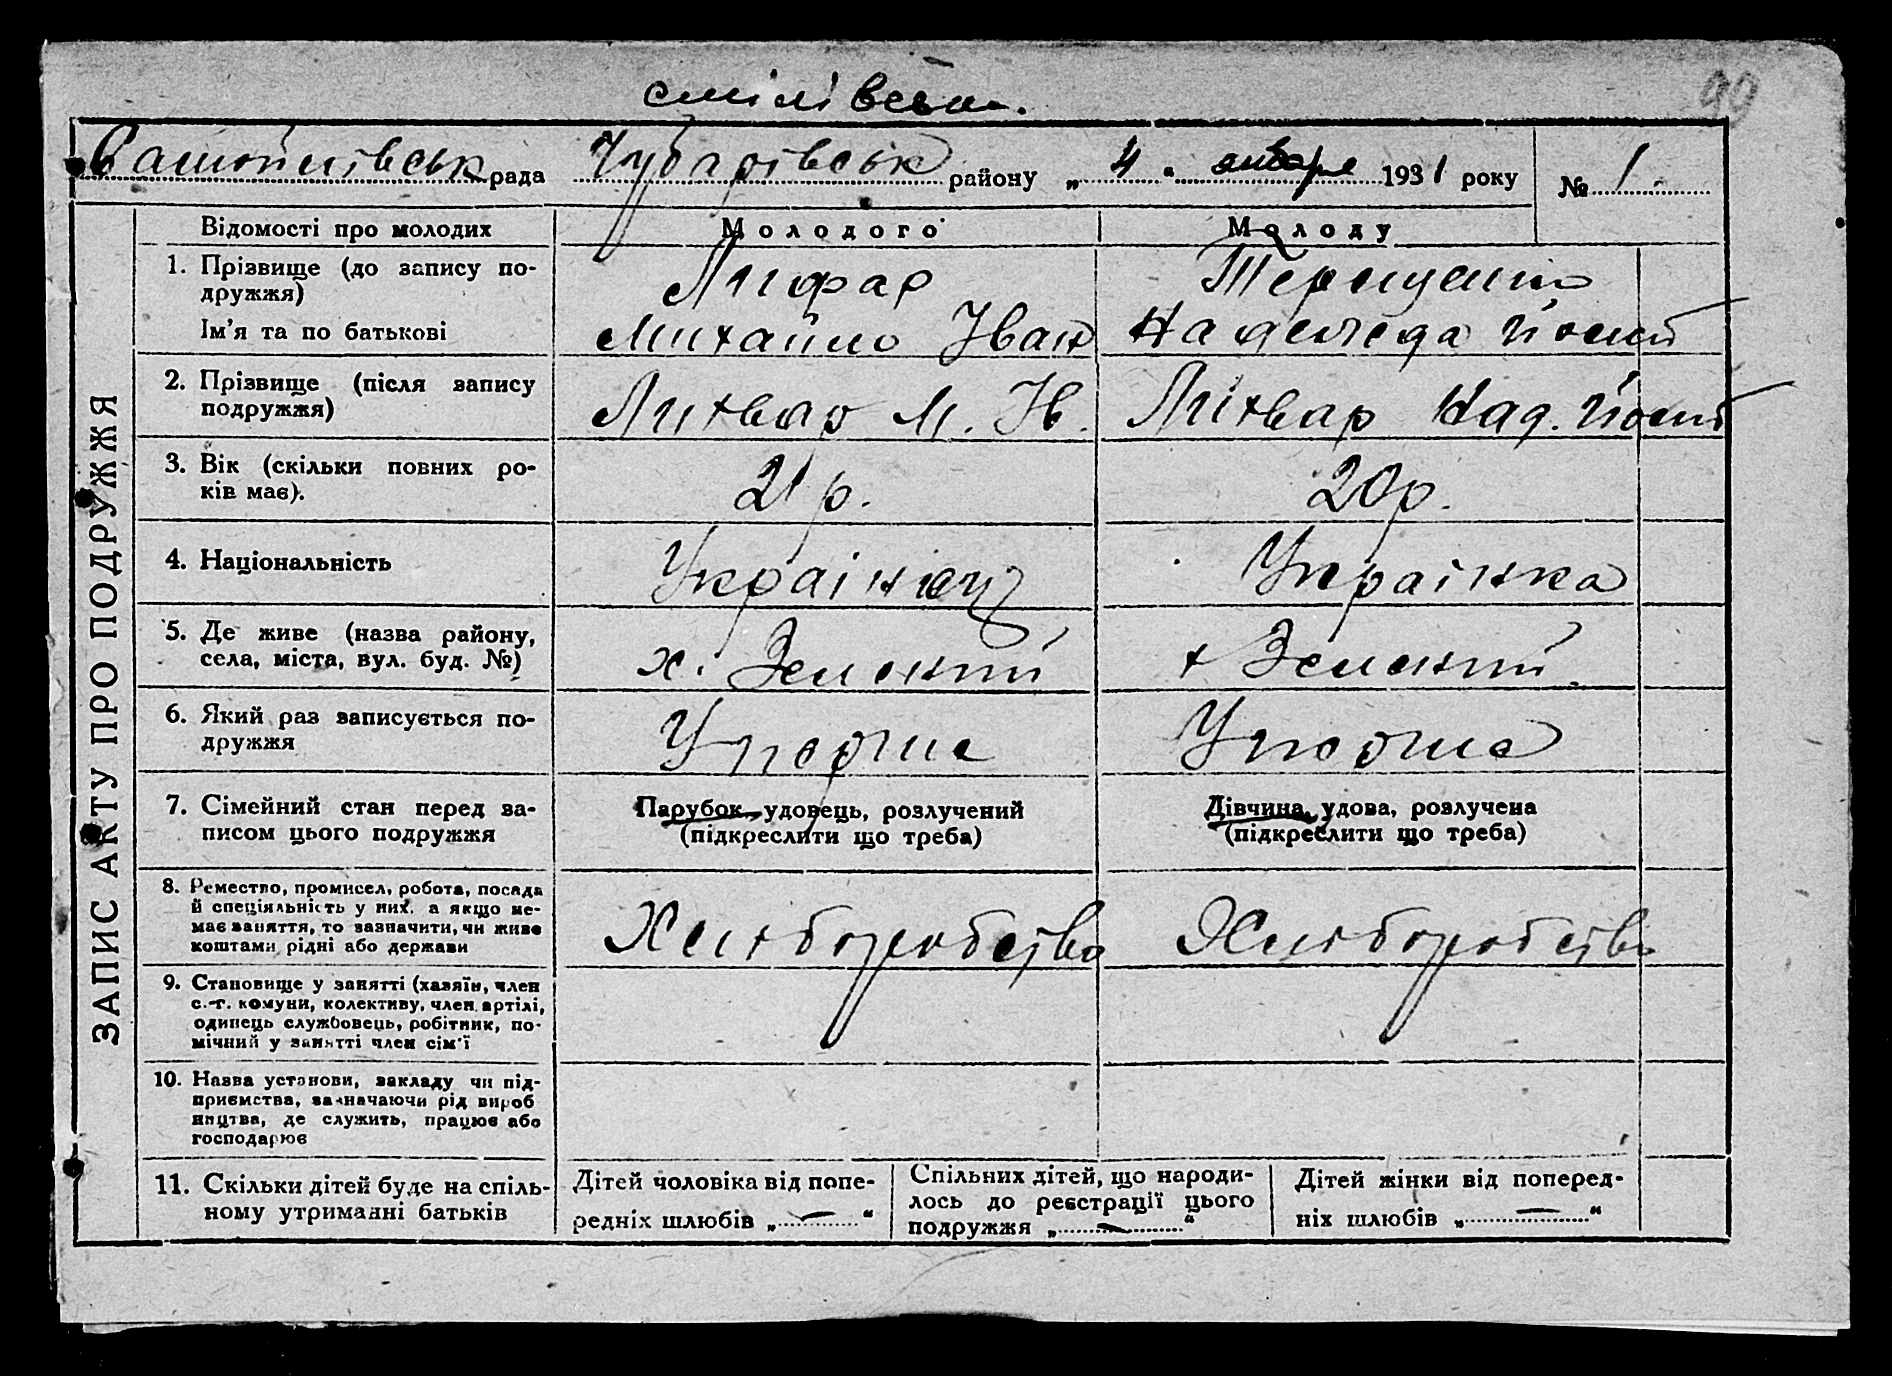 99
рада Чубарівськ району „ 4 " января 1931 року № 1.
ЗАПИС АКТУ ПРО ПОДРУЖЖЯ
Відомості про молодих Молодого Молоду
1. Прізвище (до запису по-
дружжя)
Лифар
Ім'я та по батькові Михайло Іван Надежда Йосип
2. Прізвище (після запису
подружжя)
Лихвар М. Ів. Лихвар Над. Йосип
3. Вік (скільки повних ро-
ків має).
21 р. 20 р.
4. Національність Українец Українка
5. Де живе (назва району,
села, міста, вул. буд. №)
х. Земский х Земский
6. Який раз записується по-
дружжя
Уперше Уперше
7. Сімейний стан перед за-
писом цього подружжя
Парубок, удовець, розлучений
(підкреслити що треба)
Дівчина, удова, розлучена
(підкреслити що треба)
8. Ремество, промисел, робота, посада
й спеціяльність у них, а якщо не-
має заняття, то зазначити, чи живе
коштами рідні або держави
Хліборобство Хліборобство
9. Становище у занятті (хазяїн, член
с.-г. комуни, колективу, член артілі,
одинець службовець, робітник, по-
мічний у занятті член сім'ї
10. Назва установи, закладу чи під-
приємства, зазначаючи рід вироб
ництва, де служить, працює або
господарює
11. Скільки дітей буде на спіль-
ному утриманні батьків
Дітей чоловіка від попе-
редніх шлюбів „ — "
Спільних дітей, що народи-
лось до реєстрації цього
подружжя „ — "
Дітей жінки від поперед-
ніх шлюбів „ — "